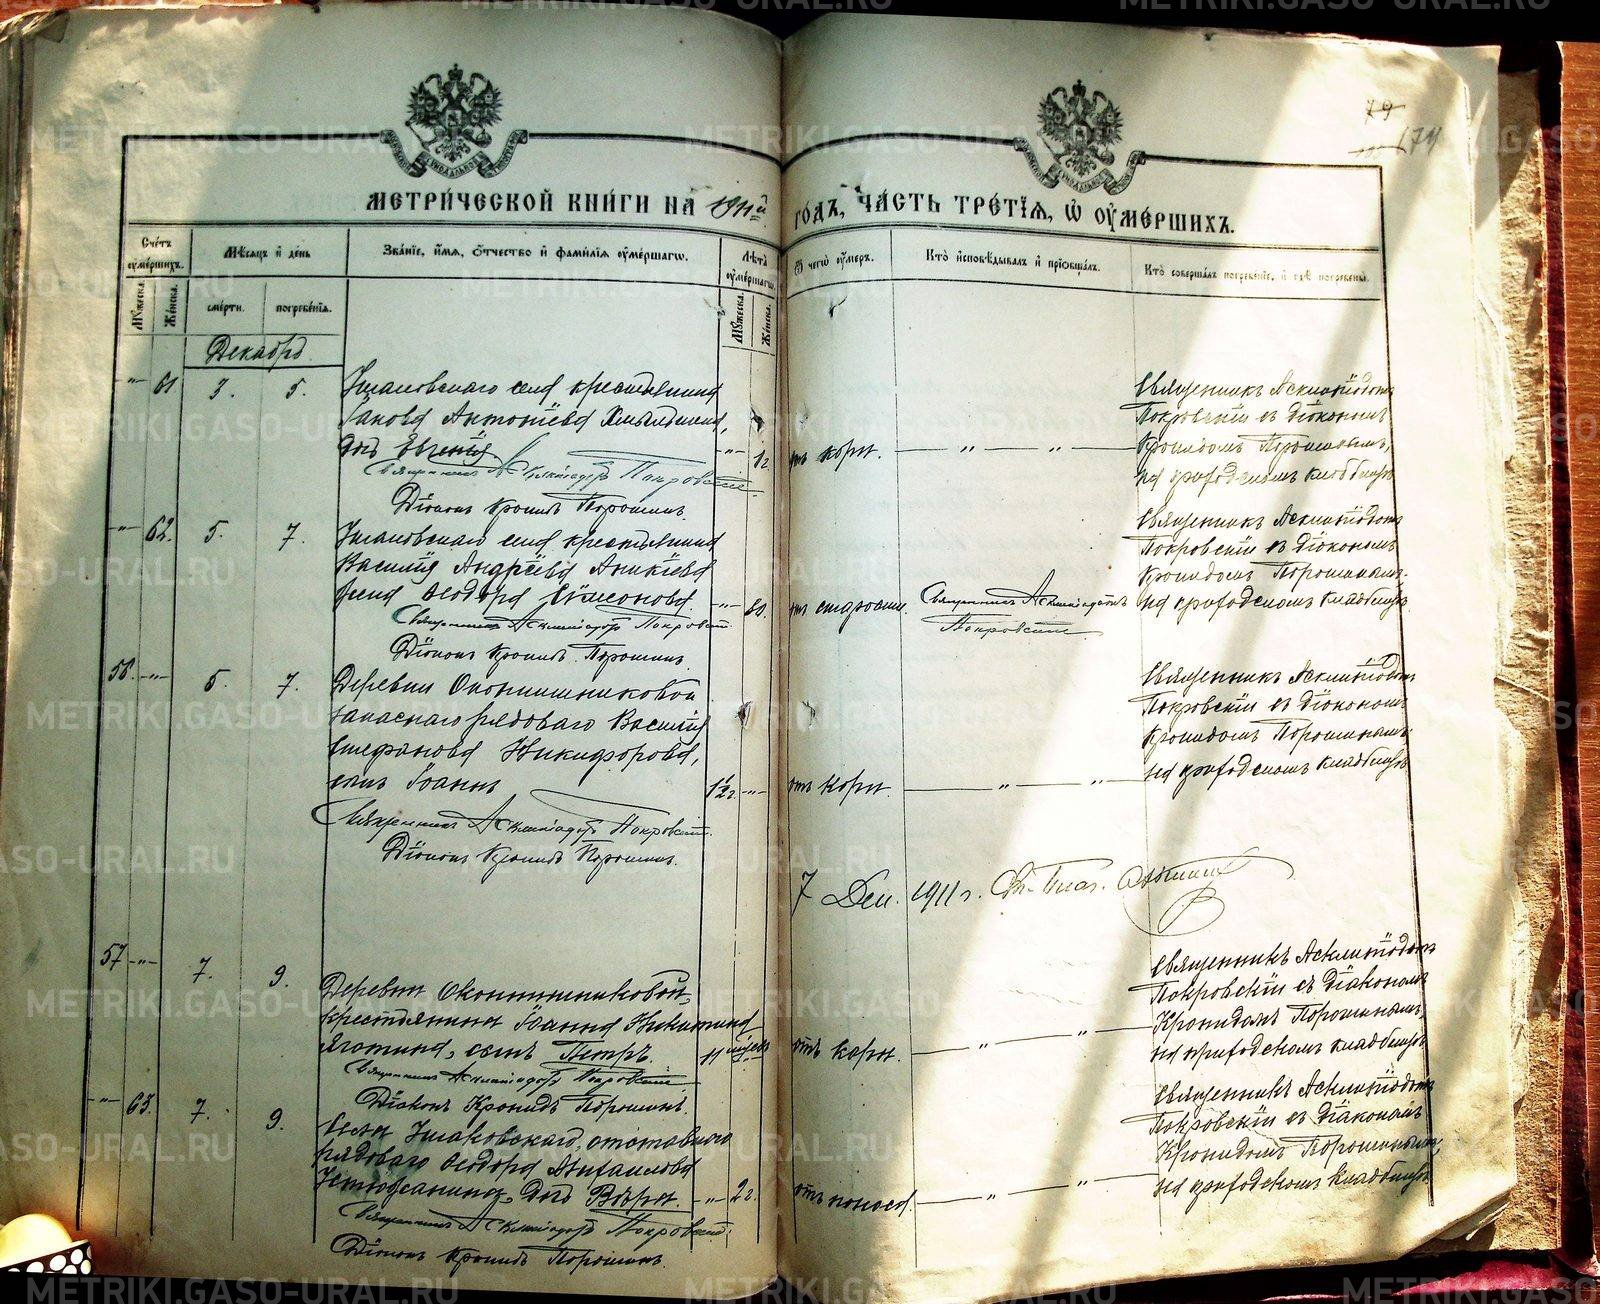 79
174
МЕТРИ́ЧЕСКОЙ КНИ́ГИ НА 1911й ГО́ДЪ, ЧА́СТЬ ТРЕ́ТІѦ, Ѡ ОУМЕ́РШИХЪ.
Сче́тъ оуме́ршихъ.
Мꙋ́жеска.
Же́нска.
Мѣ́сѧцъ и҆ де́нь
сме́рти.
погребе́нїѧ.
Зва́нїе, и҆́мѧ, ѻ҆́тчество и҆ фами́лїѧ оуме́ршагѡ.
Лѣ́та оуме́ршагѡ.
Мꙋ́жеска.
Же́нска.
Ѿ чегѡ̀ оу́меръ.
Кто̀ и҆сповѣ́дывалъ и҆ прїѡбща́лъ.
Кто̀ соверша́лъ погребе́нїе, и҆ гдѣ̀ погребены̀.
Декабрь
" 61. 3. 5.
Ушаковскаго села крестьянина
Іакова Антоніева
дочь Евгенія
" 1 г. отъ кори. " "
Священникъ Асклипіодотъ Покровскій
Діаконъ Кронидъ Порошинъ.
Священникъ Асклипіодотъ
Покровскій съ Діакономъ
Кронидомъ Порошинымъ,
на приходскомъ кладбищѣ
" 62. 5. 7.
Ушаковскаго села крестьянина
Василія Андреева Аникіева
жена Ѳеодора Симеонова.
" 60. отъ старости.
Священникъ Асклипіодотъ
Покровскій
Священникъ Асклипіодотъ Покровскій
Діаконъ Кронидъ Порошинъ.
Священникъ Асклипіодотъ
Покровскій съ Діакономъ
Кронидомъ Порошинымъ
на приходскомъ кладбищѣ
56. " 5. 7.
Деревни Оконишниковой
запаснаго рядоваго Василія
Стефанова Никифорова,
сынъ Іоаннъ
1½ г. " отъ кори. " "
Священникъ Асклипіодотъ Покровскій.
Діаконъ Кронидъ Порошинъ.
Священникъ Асклипіодотъ
Покровскій съ Діакономъ
Кронидомъ Порошинымъ
на приходскомъ кладбищѣ
7 Дек. 1911 г. Благ.
57 " 7. 9.
Деревни Оконишниковой,
крестьянина Іоанна Никитина
Яготина, сынъ Петръ.
11 мѣсяц. отъ кори. " "
Священникъ Асклипіодотъ Покровскій
Діаконъ Кронидъ Порошинъ.
Священникъ Асклипіодотъ
Покровскій съ Діакономъ
Кронидомъ Порошинымъ,
на приходскомъ кладбищѣ
" 63. 7. 9.
Села Ушаковскаго, отставного
рядоваго Ѳеодора Михаилова
дочь Вѣра.
" 2 г. отъ поноса. " "
Священникъ Асклипіодотъ Покровскій
Діаконъ Кронидъ Порошинъ.
Священникъ Асклипіодотъ
Покровскій съ Діакономъ
Кронидомъ Порошинымъ,
на приходскомъ кладбищѣ
METRIKI.GASO-URAL.RU